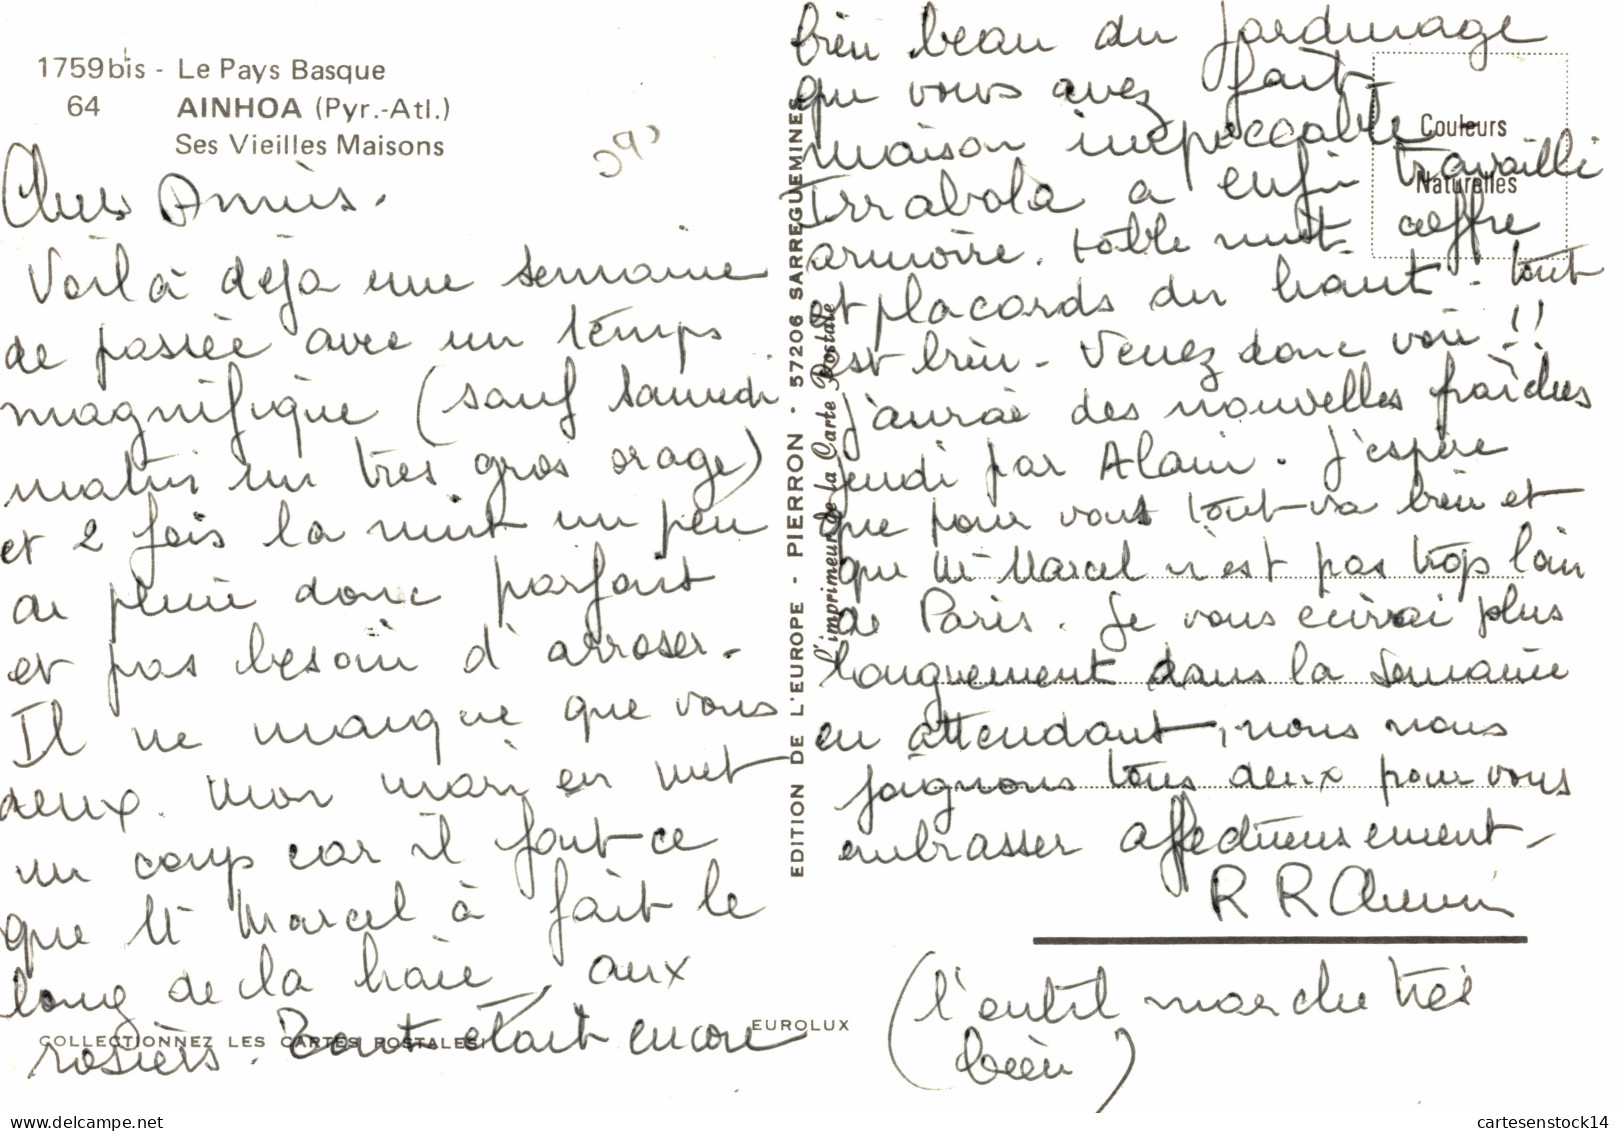 1759bis - Le Pays Basque
64 AINHOA (Pyr.-Atl.)
Ses Vieilles Maisons
Chers Amis.
Voilà déja une semaine
de passée avec un temps
magnifique (sauf samedi
matin un très gros orage)
et 2 fois la nuit un peu
de pluie donc parfait
et pas besoin d'arroser.
Il ne manque que vous
deux. Mon mari en met
un coup car il faut ce
que Mr Marcel à fait le
long de la haie, aux
rosiers. Tout était encore
COLLECTIONNEZ LES CARTES POSTALES!
EUROLUX
EDITION DE L'EUROPE - PIERRON - 57206 SARREGUEMINES
L'imprimeur de la Carte Postale
Couleurs
Naturelles
bien beau du jardinage
que vous avez fait
maison impeccable
Irrabola a enfin travaillé
armoire. table nuit coffre
et placards du haut. tout
est bien - Venez donc voir!!
j'aurai des nouvelles fraîches
jeudi par Alain. J'espère
que pour vous tout va bien et
que Mr Marcel n'est pas trop loin
de Paris. Je vous écrirai plus
longuement dans la semaine
en attendant, nous nous
joignons tous deux pour vous
embrasser affectueusement
R R
(l'outil marche très
bien)
cartesenstock14